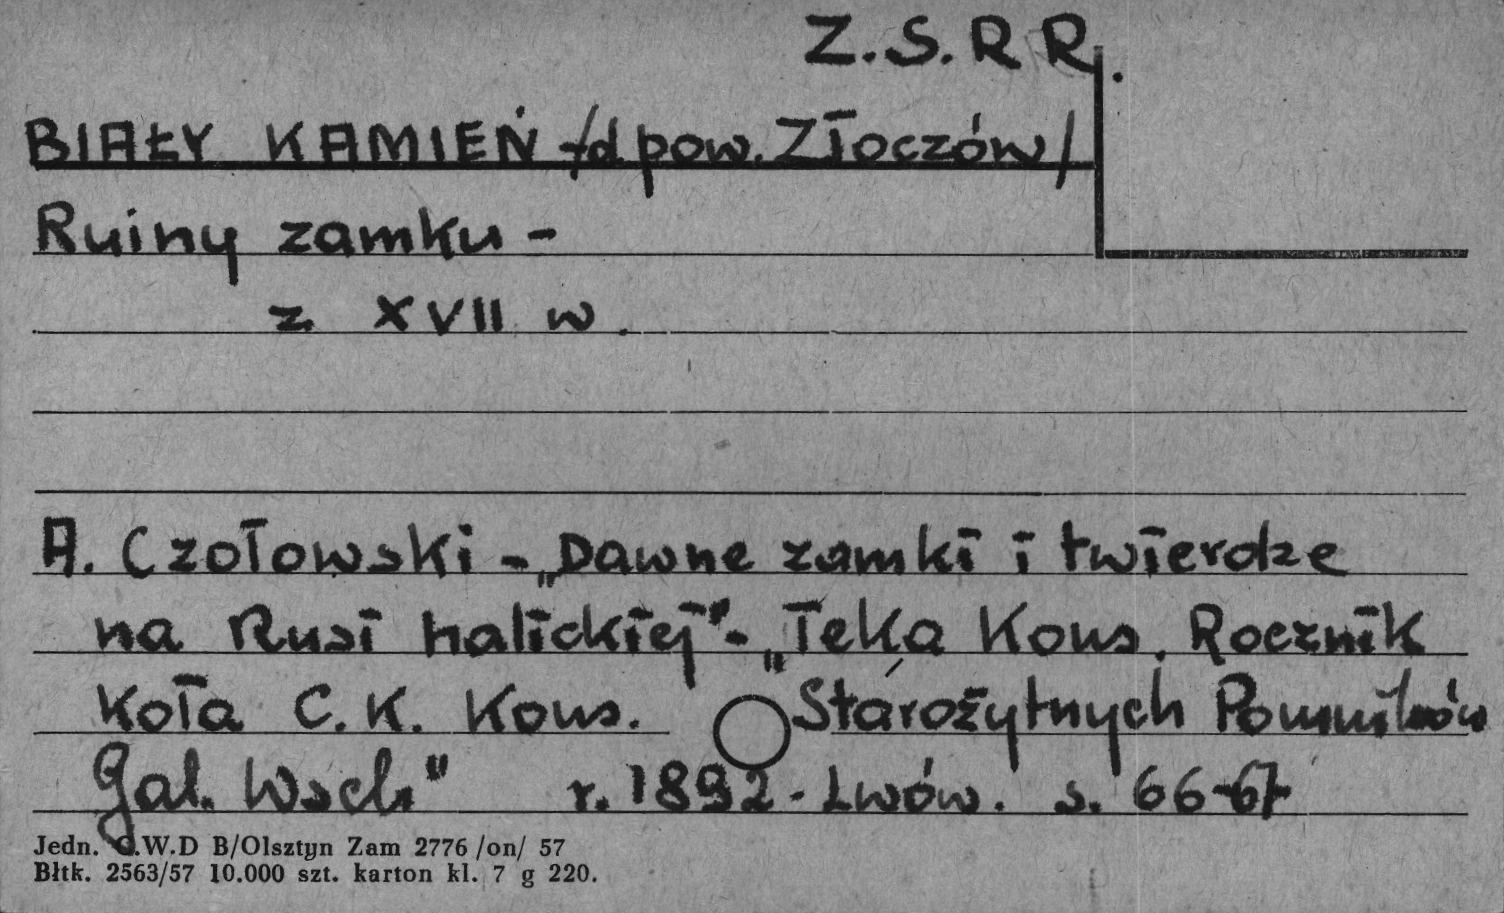 Z.S.R R.
BIAŁY KAMIEŃ /d pow. Złoczów/
Ruiny zamku -
z XVII w.
A. Czołowski - „Dawne zamki i twierdze
na Rusi halickiej" - „Teka Kons. Rocznik
Koła C.K. Kons. Starożytnych Pomników
Gal. Wsch" r. 1892 - Lwów. s. 66-67
Jedn. C.W.D B/Olsztyn Zam 2776 /on/ 57
Błtk. 2563/57 10.000 szt. karton kl. 7 g 220.